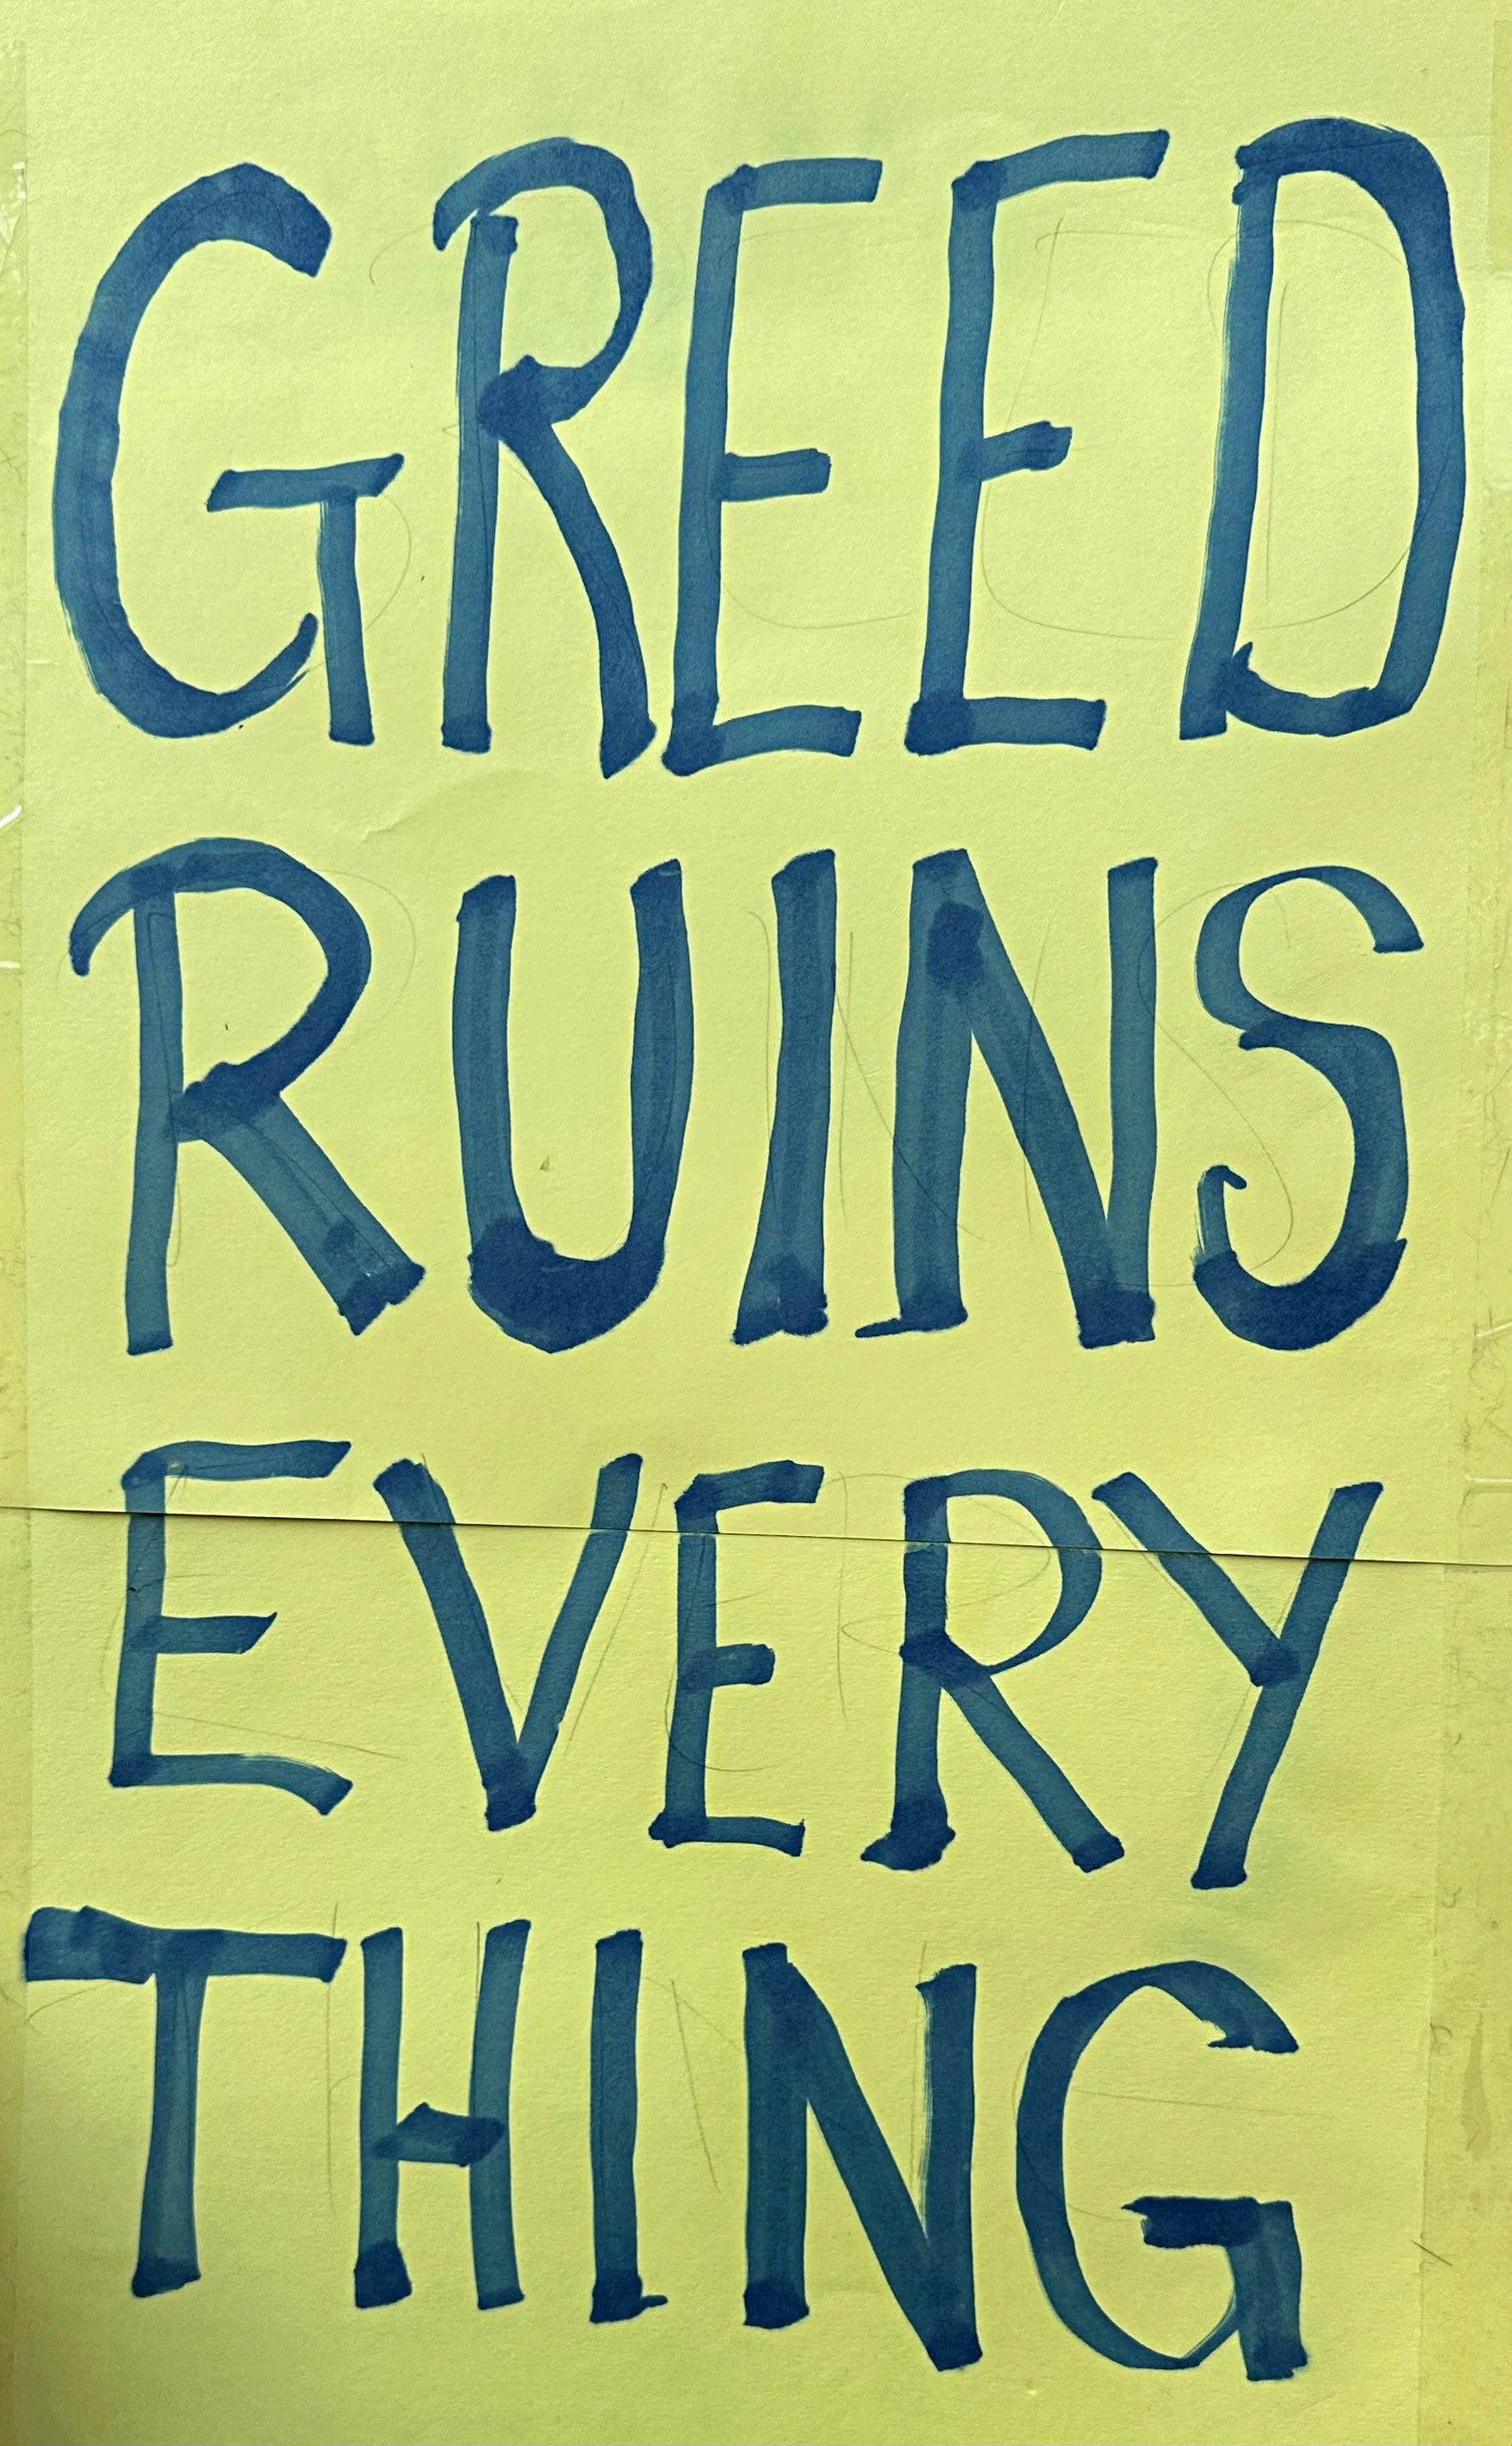 GREED
RUINS
EVERY
THING